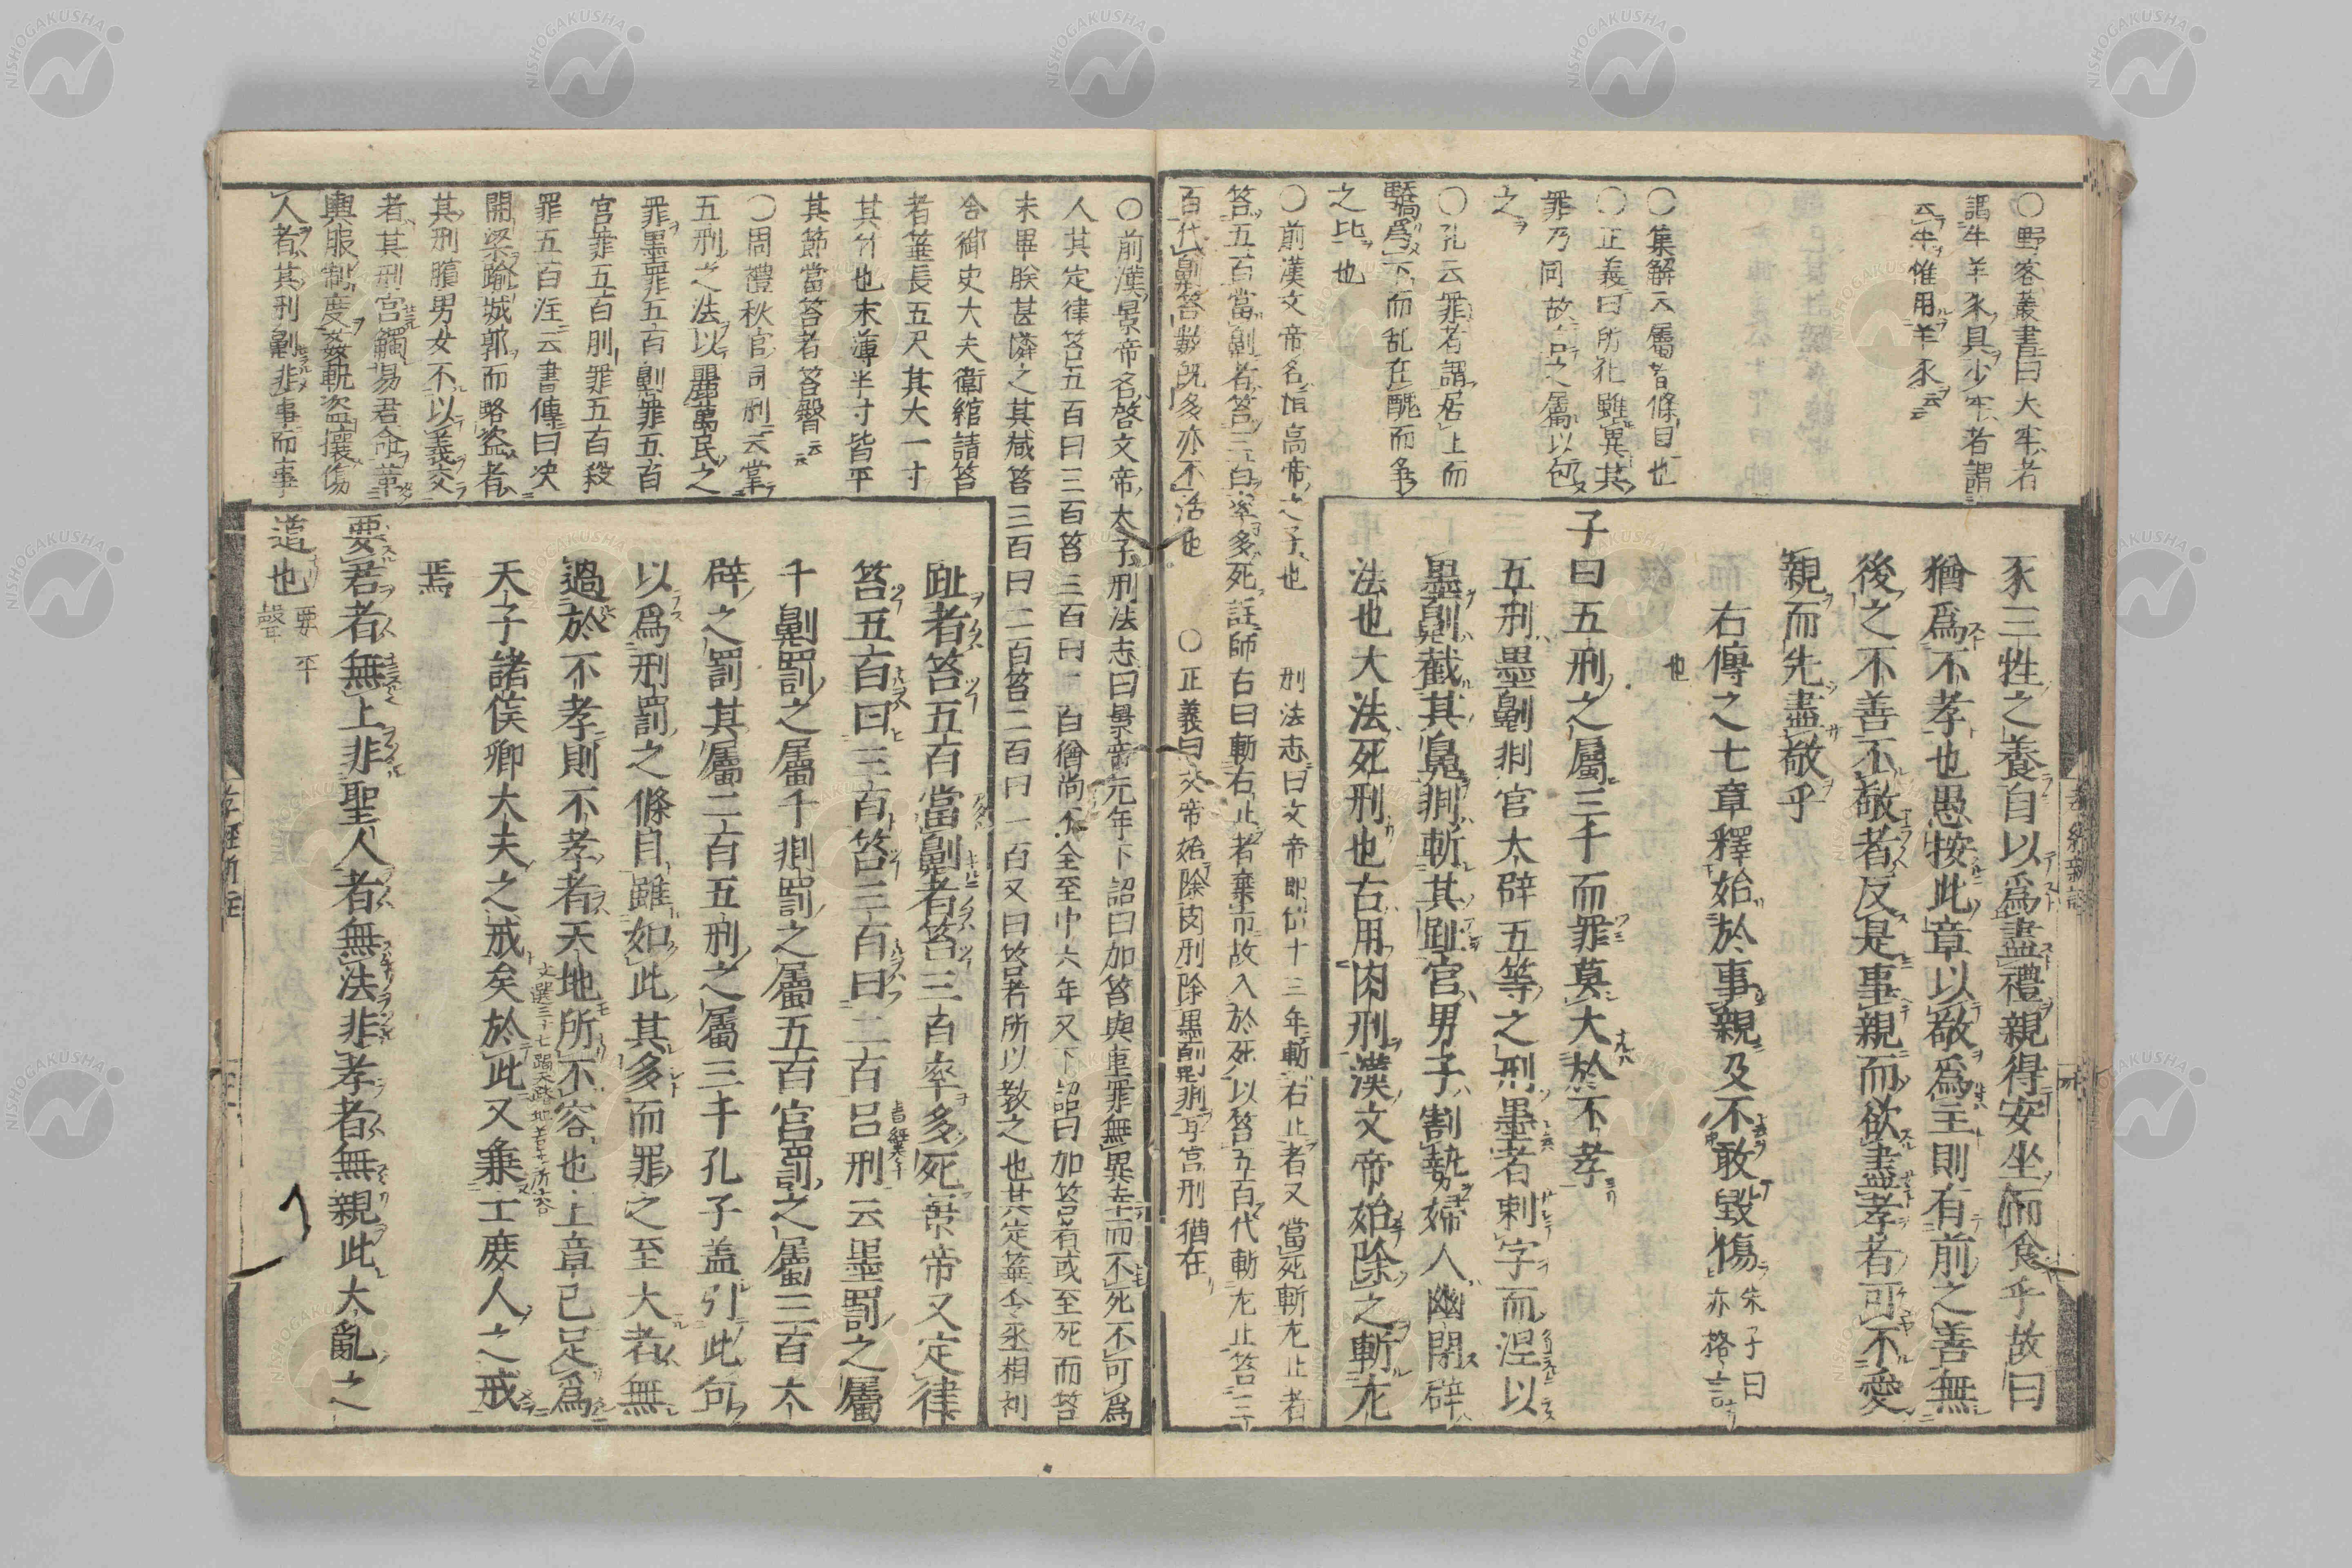 ○野客叢書曰大牢者
謂牛羊豕具少牢者謂
云牛惟用羊豕云云
○集解云屬者條目也
○正義曰所犯雖異其
罪乃同故言之屬以包
之
○孔云罪者謂居上而
驕爲下而乱在醜而爭
之比也
○前漢文帝名恒高帝之子也 刑法志曰文帝即位十三年斬右止者又當死斬左止者
笞五百當劓者笞三百率多死註師古曰斬右止者棄市故入於死以笞五百代斬左止笞三
百代劓笞數既多亦不活也 ○正義曰文帝始除肉刑除墨劓剕耳宮刑猶在
豕三牲之養自以爲盡禮親得安坐而食乎故曰
猶爲不孝也愚按此章以敬爲主則有前之善無
後之不善不敬者反是事親而欲盡孝者可不愛
親而先盡敬乎
右傳之七章釋始於事親及不敢毀傷朱子曰亦格言
也
子曰五刑之屬三千而罪莫大於不孝
五刑墨劓剕宮大辟五等之刑墨者刺字而涅以
墨劓截其鼻剕斬其趾宮男子割勢婦人幽閉辟
法也大法死刑也古用肉刑漢文帝始除之斬左
○前漢景帝名啓文帝太子刑法志曰景帝元年下詔曰加笞與重罪無異幸而不死不可爲
人其定律笞五百曰三百笞三百曰二百猶尚不全至中六年又下詔曰加笞者或至死而笞
未畢朕甚憐之其減笞三百曰二百笞二百曰一百又曰笞者所以教之也其定箠令丞相劉
舍御史大夫衛綰請笞
者箠長五尺其大一寸
其竹也末薄半寸皆平
其節當笞者笞臀云云
○周禮秋官司刑云掌
五刑之法以麗萬民之
罪墨罪五百劓罪五百
宮罪五百刖罪五百殺
罪五百注云書傳曰決
開梁踰城郭而略盜者
其刑臏男女不以義交
者其刑宮觸易君命革
輿服制度姦軌盜攘傷
人者其刑劓非事而事
趾者笞五百當劓者笞三百率多死景帝又定律
笞五百曰三百笞三百曰二百呂刑云墨罰之屬
千劓罰之屬千剕罰之屬五百宮罰之屬三百大
辟之罰其屬二百五刑之屬三千孔子蓋引此句
以爲刑罰之條目雖如此其多而罪之至大者無
過於不孝則不孝者天地所不容也上章已足爲
天子諸侯卿大夫之戒矣於此又兼士庶人之戒
焉
要君者無上非聖人者無法非孝者無親此大亂之
道也 要平聲